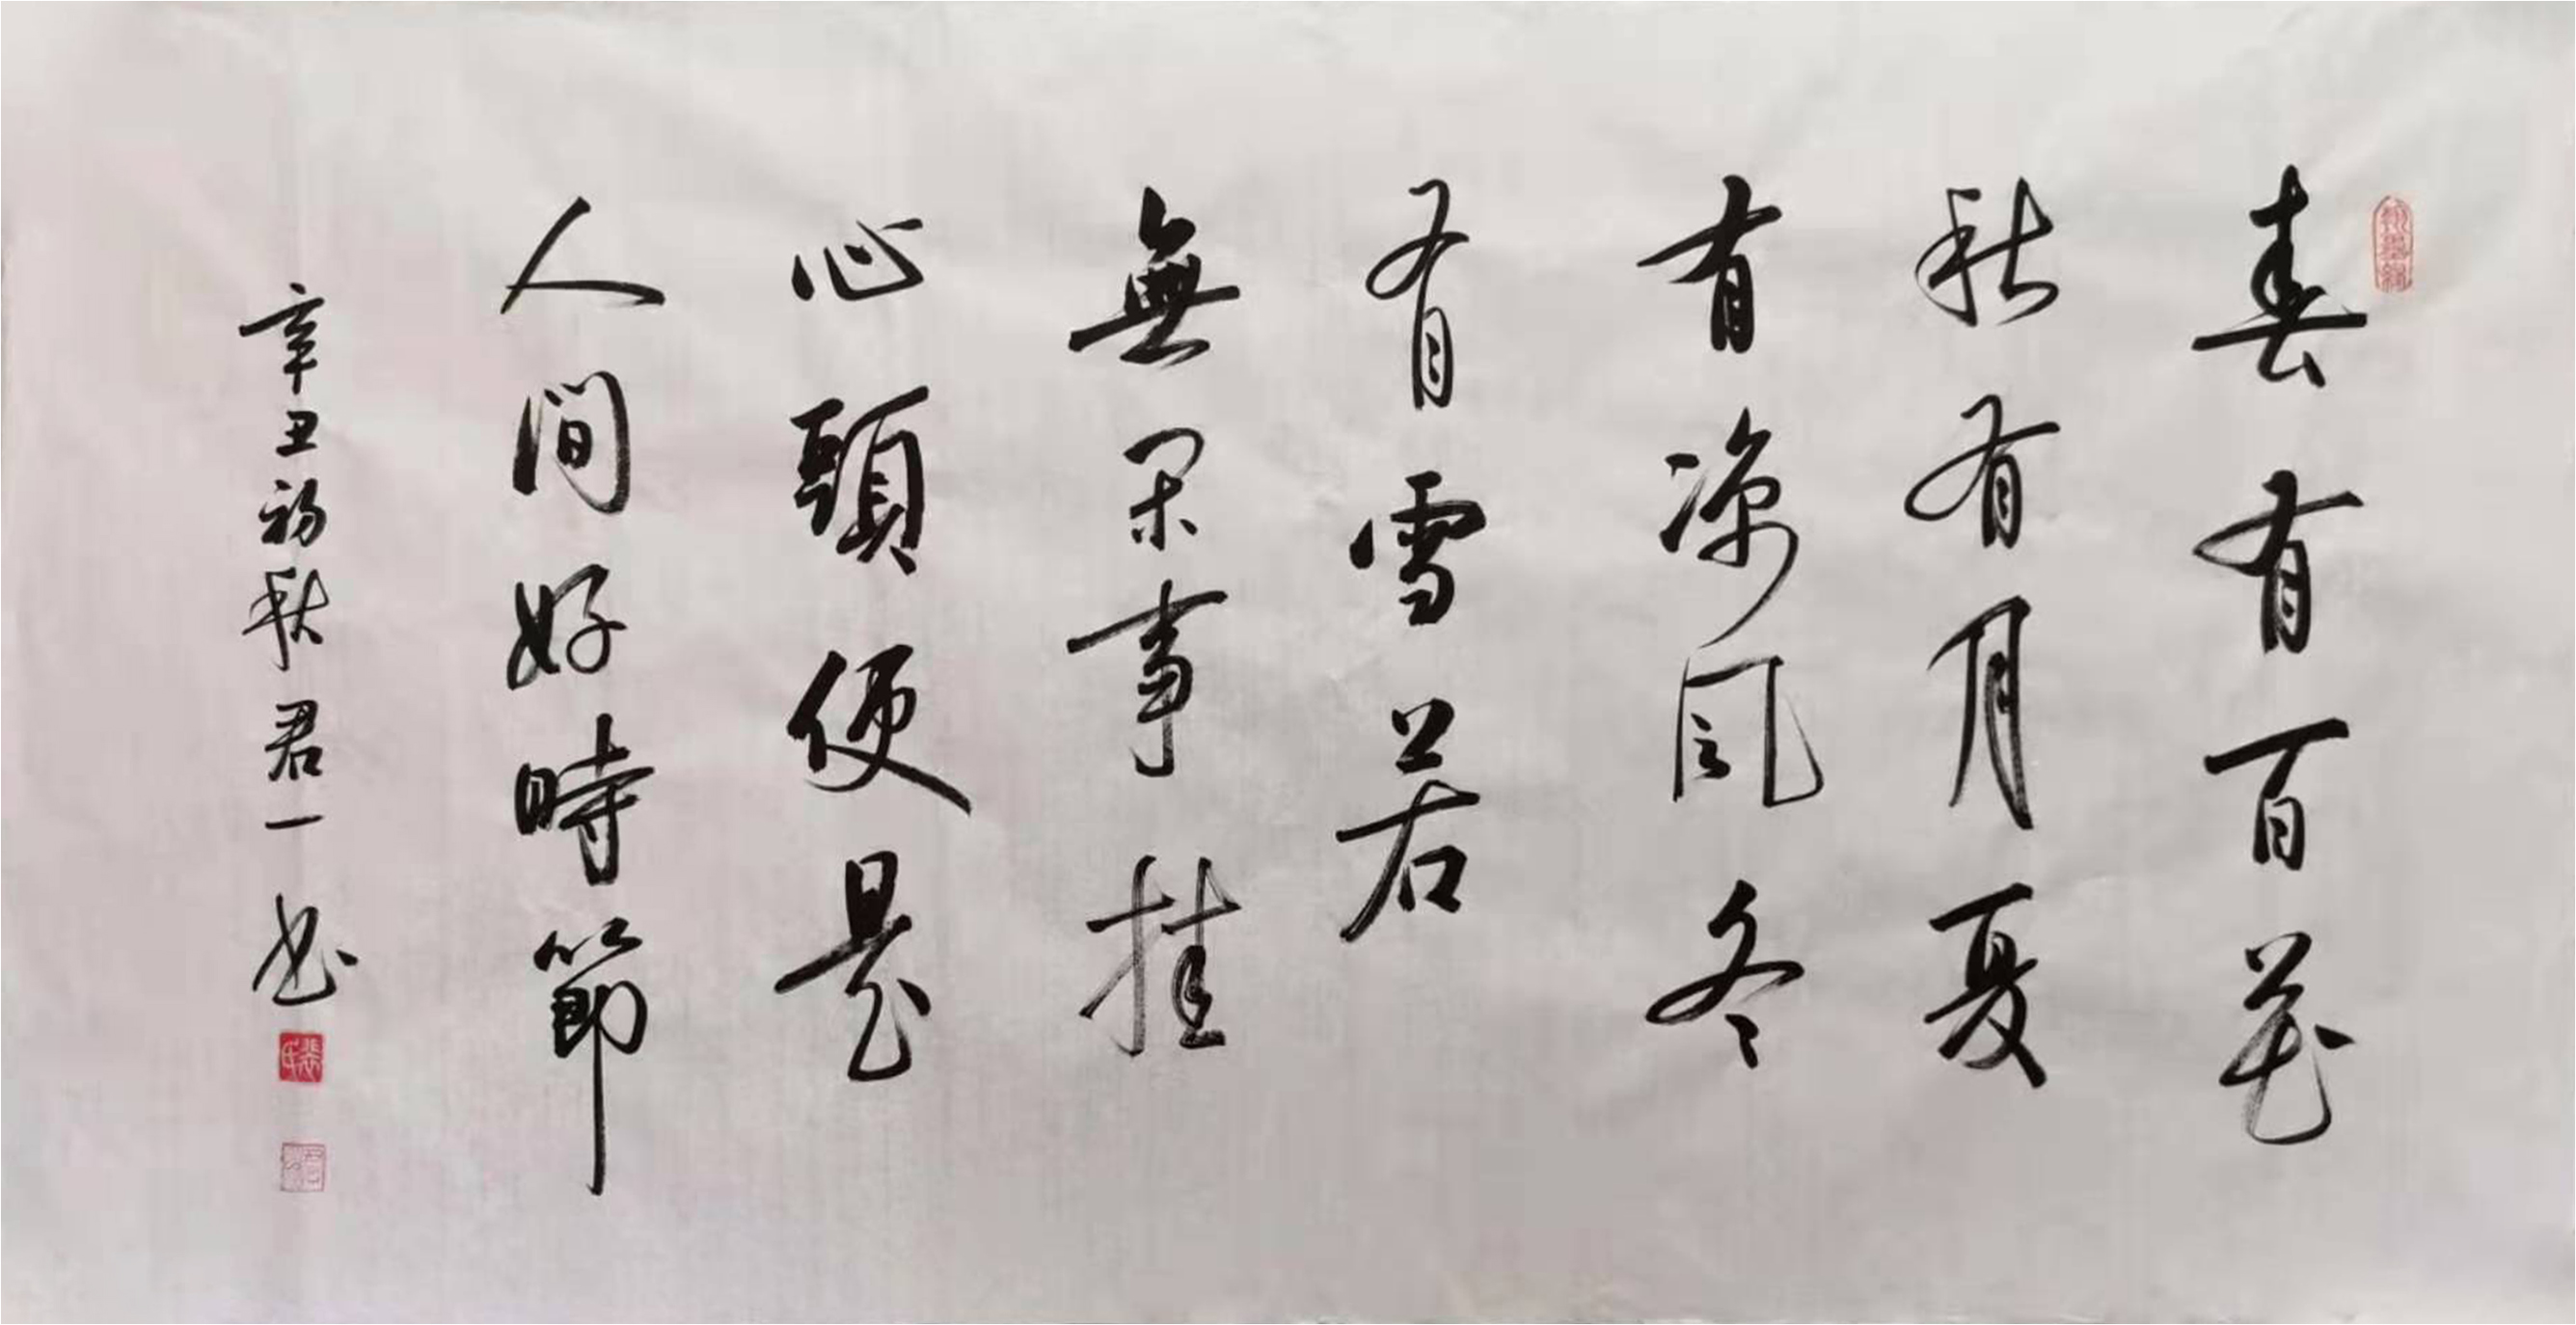 春有百花
秋有月夏
有涼風冬
有雪若
無閑事挂
心頭便是
人间好時節
辛丑初秋君一书
張氏